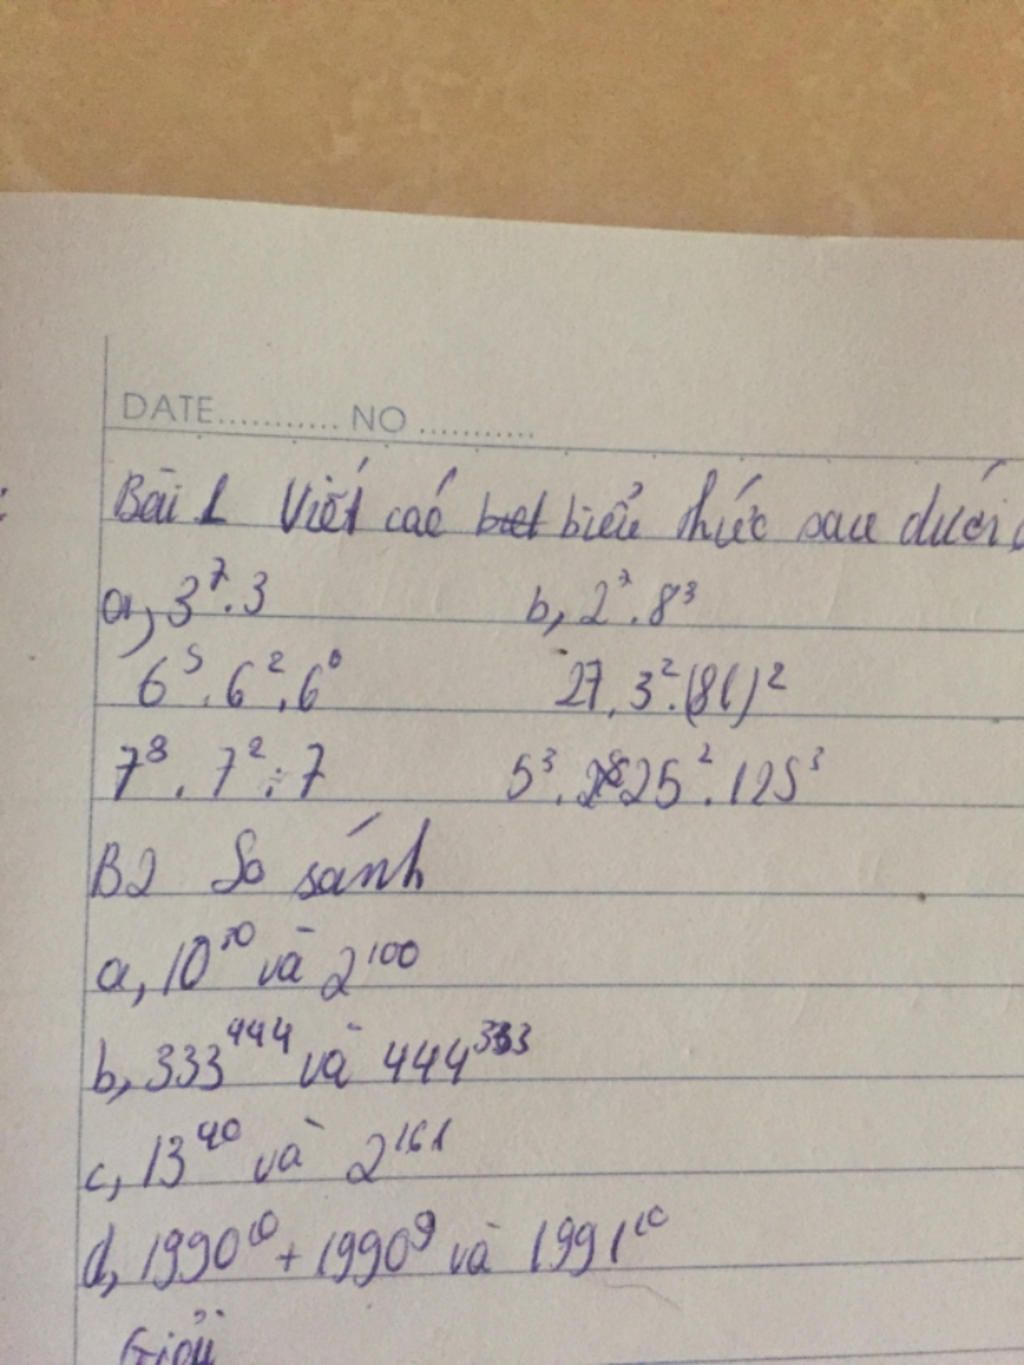 DATE........... NO ...........
Bài 1 Viết các biểu thức sau dưới
a, 3⁷.3 b, 2³.8³
6⁵.6².6⁰ 27.3².(81)²
7⁸.7²:7 5³.25².125³
B2 So sánh
a, 10³⁰ và 2¹⁰⁰
b, 333⁴⁴⁴ và 444³³³
c, 13⁴⁰ và 2¹⁶¹
d, 1990¹⁰ + 1990⁹ và 1991¹⁰
Giải